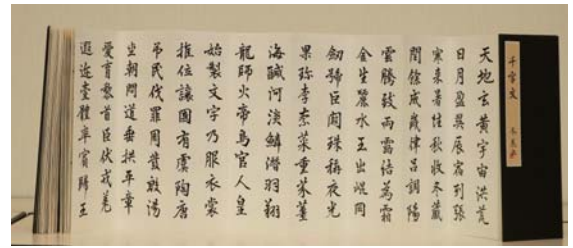 千字文
天地玄黄宇宙洪荒
日月盈昃辰宿列張
寒来暑往秋收冬蔵
閏餘成歳律呂調陽
雲騰致雨露結為霜
金生麗水玉出崐岡
劒號巨闕珠稱夜光
果珎李柰菜重芥薑
海鹹河淡鱗潜羽翔
龍師火帝鳥官人皇
始製文字乃服衣裳
推位讓國有虞陶唐
吊民伐罪周發殷湯
坐朝問道垂拱平章
愛育黎首臣伏戎羌
遐迩壹體率賓歸王